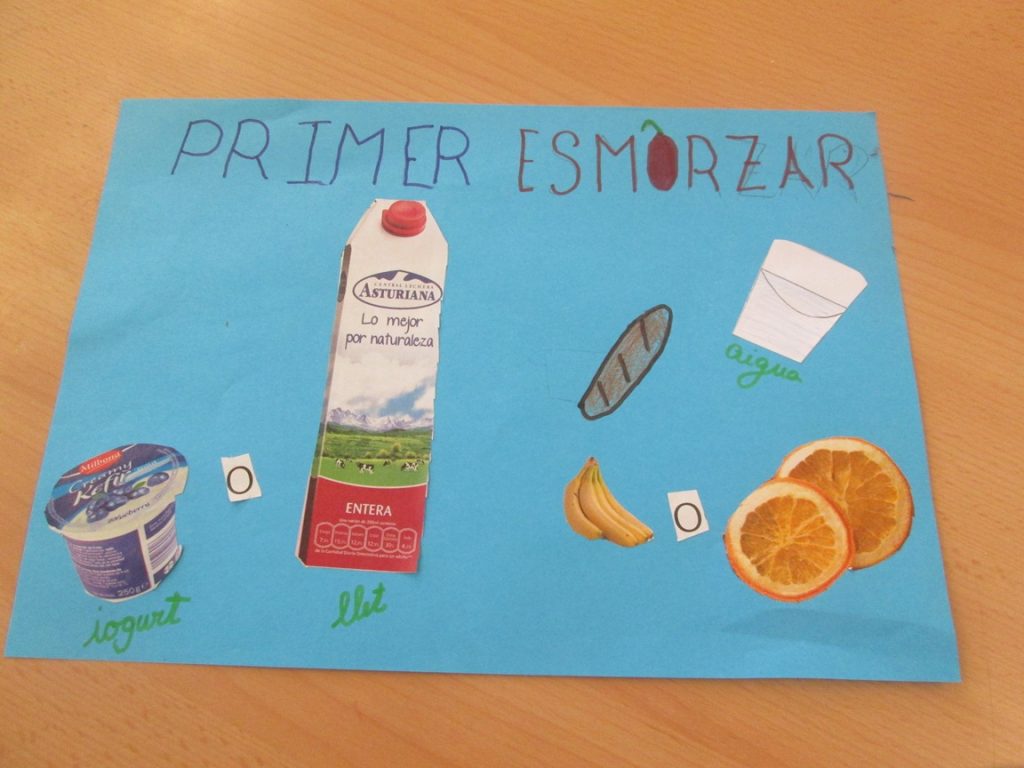 PRIMER ESMORZAR
CENTRAL LECHERA
ASTURIANA
Lo mejor
por naturaleza
aigua
Milbona
Creamy
Kefir
Blueberry
250g e
O
ENTERA
O
iogurt
llet